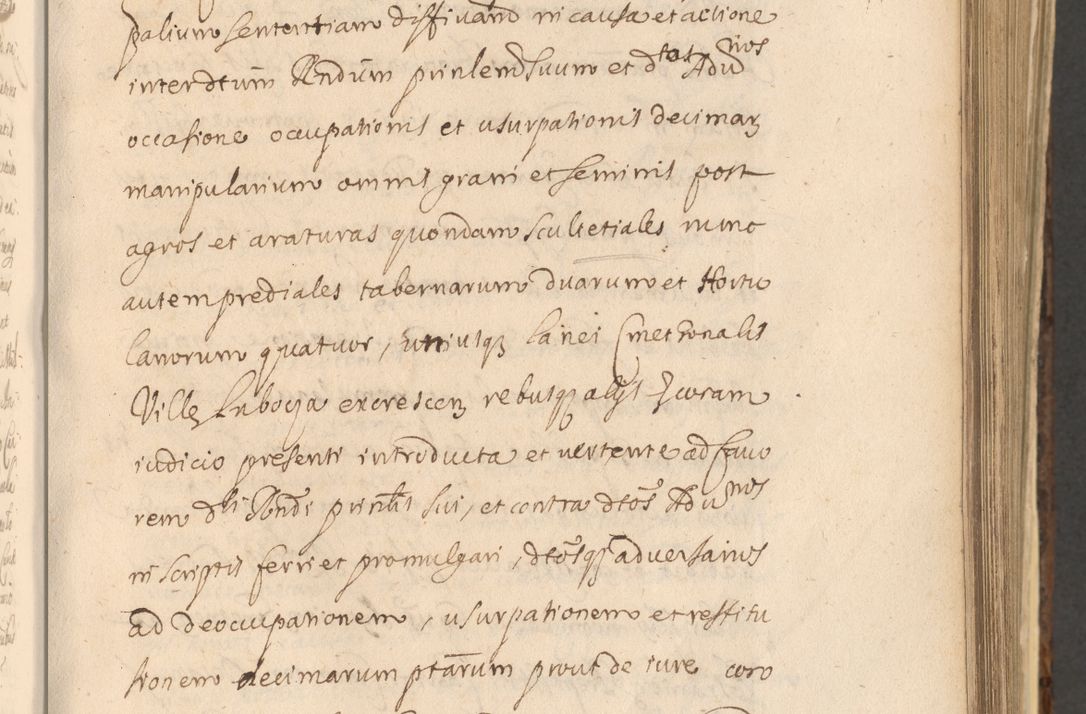 palium sententiam diffivam in causa et actione
inter dtum Rndum prinlem suum et dtos Aduos
occasione occupationis et usurpationis decimar
manipularium omnis grani et seminis post
agros et araturas quondam scultetiales nunc
autem prediales tabernarum duarum et Hortu
lanorum quatuor, uniusq lanei Cmethonalis
Ville Lubocza excrescen rebusq alys coram
iudicio presenti introducta et vertente ad favo
rem dti Rnde prinlis sui, et contra dtos Adunos
in scriptis ferri et promulgari, dtosq adversarios
ad deoccupationem, usurpationem et restitu
tionem decimarum ptarum prout de iure coro